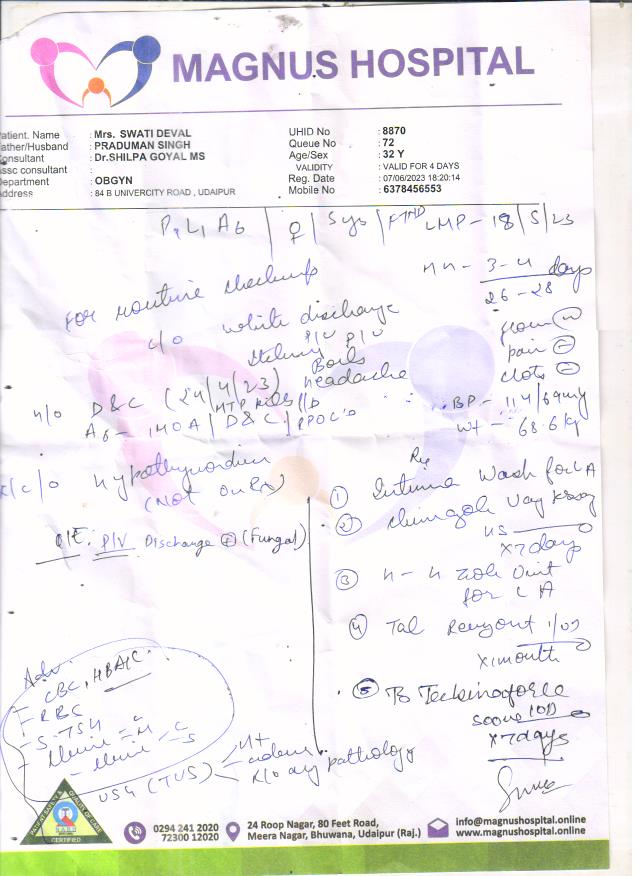 MAGNUS HOSPITAL
Patient. Name : Mrs. SWATI DEVAL
Father/Husband : PRADUMAN SINGH
Consultant : Dr.SHILPA GOYAL MS
Assc consultant :
Department : OBGYN
Address : 84 B UNIVERCITY ROAD , UDAIPUR
UHID No : 8870
Queue No : 72
Age/Sex : 32 Y
VALIDITY : VALID FOR 4 DAYS
Reg. Date : 07/06/2023 18:20:14
Mobile No : 6378456553
P1 L1 A6 / ♀ / 5ys / FTND
LMP - 18/5/23
3-4 days
26-28
For routine checkup
c/o white discharge
Itching P/V P/V
Boils
headache
flow
pain -
clots -
H/o D&C (24/4/23)
MTP
A6 - D&C / RPOC's
BP - 114/64
wt - 68.6 kg
K/c/o Hypothyroidism
(Not on Rx)
O/E: P/V Discharge + (Fungal)
Rx
① Intima Wash for LA
②
HS
x 7 days
③
for LA
④ Tab 1/OD
x 1 month
⑤
(OD)
x 7 days
Adv.
CBC, HBA1C.
- RBS
- S.TSH
- Urine - R/M
- Urine - C/S
USG (TVS)
R/o any pathology
PATIENT SAFETY & QUALITY OF CARE
NABH
CERTIFIED
0294 241 2020
72300 12020
24 Roop Nagar, 80 Feet Road,
Meera Nagar, Bhuwana, Udaipur (Raj.)
info@magnushospital.online
www.magnushospital.online